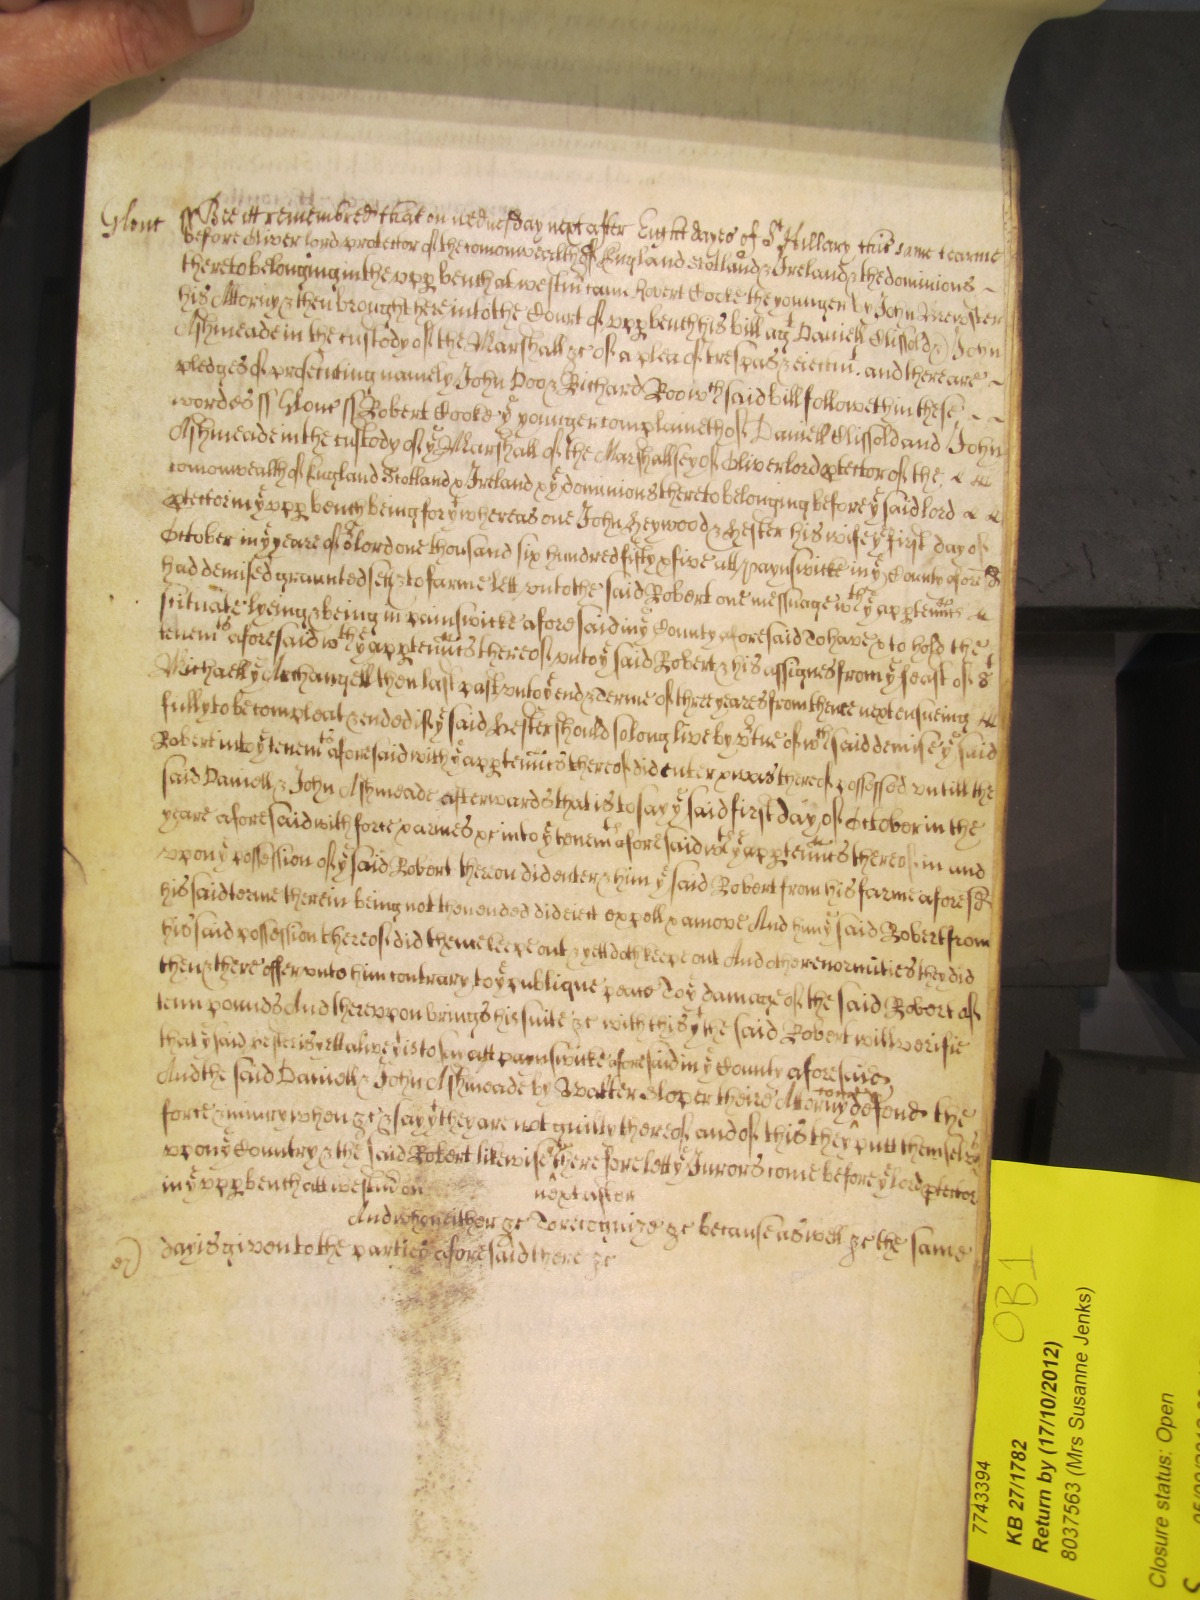 Glouc ss Bee itt remembred that on wednesday next after Eight dayes of St Hillary this same tearme
before Oliver lord protector of the comonwealth of England Scotland & Ireland & the dominions
thereto belonging in the upp bench at westm came Robert Cooke the younger by John
his Attorny & then brought here into the Court of upp bench his bill agt Daniell Clissold & John
Ashmeade in the custody of the Marshall &c of a plea of trespas & eiectmt. and there are
pledges of prosecuting namely John Doo & Richard Roo wch said bill followeth in these
wordes ss Glouc ss Robert Cooke ye younger complaineth of Daniell Clissold and John
Ashmeade in the custody of ye Marshall of the Marshallsey of Oliver lord ptector of the
comonwealth of England Scotland & Ireland & ye dominions thereto belonging before ye said lord
ptector in ye upp bench being for yt whereas one John Heywood & Hester his wife ye first day of
October in ye yeare of or lord one thousand six hundred fifty & five att paynswicke in ye County aforesd
had demised graunted sett & to farme lett unto the said Robert one messuage wth ye apptennts
scituate lyeing & being in painswicke aforesaid in ye County aforesaid To have & to hold the
tenemts aforesaid wth ye apptennts thereof unto ye said Robert & his assignes from ye feast of St
Michaell ye Archangell then last past unto ye end & terme of three yeares from thence next ensueing
fully to be compleat & ended if ye said Hester should so long live by vtue of wch said demise ye said
Robert into ye tenemts aforesaid with ye apptennts thereof did enter & was thereof possessed untill the
said Daniell & John Ashmeade afterwards that is to say ye said first day of October in the
yeare aforesaid with force & armes &c into ye tenemts aforesaid wth ye apptennts thereof in and
upon ye possession of ye said Robert thereon did enter & him ye said Robert from his farme aforesd
his said terme therein being not then ended did eiect expell & amove And him ye said Robert from
his said possession thereof did thence keepe out & yett doth keepe out And other enormities they did
then & there offer unto him contrary to ye publique peace To ye damage of the said Robert of
tenn pounds And thereupon brings his suite &c with this yt the said Robert will verifie
that ye said Hester is yett alive yt is to say att paynswicke aforesaid in ye County aforesaid
And the said Daniell & John Ashmeade by Walter Sloper theire Attorny come & defend the
force & iniury when &c & say yt they are not guilty thereof and of this they putt themselves
upon ye Country & the said Robert likewise Therefore lett ye Jurors come before ye lord ptector
in ye upp bench att westm on next after
And who neither &c To recognize &c because aswell &c the same
day is given to the parties aforesaid there &c
OB1
7743394
KB 27/1782
Return by (17/10/2012)
8037563 (Mrs Susanne Jenks)
Closure status: Open